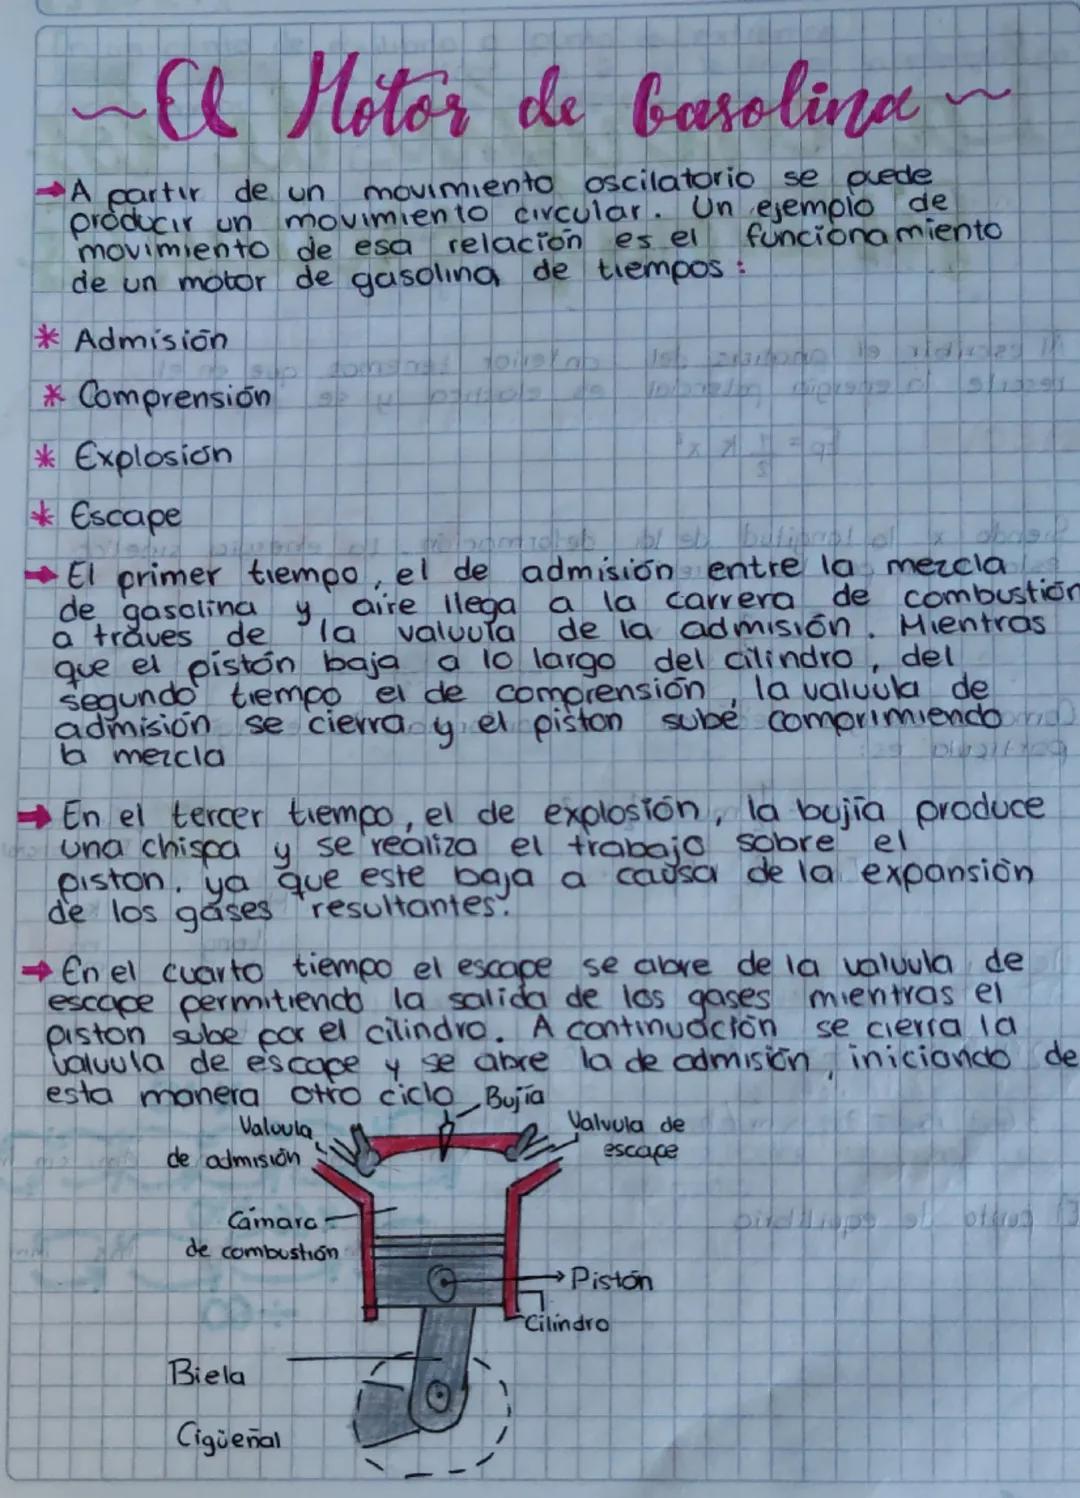 ~El Motor de Gasolina~
→A partir de un movimiento oscilatorio se puede
producir un movimiento circular. Un ejemplo de
movimiento de esa relación es el funcionamiento
de un motor de gasolina de tiempos:
* Admisión
* Comprensión
* Explosión
* Escape
→ El primer tiempo, el de admisión entre la mezcla
de gasolina y aire llega a la carrera de combustión
a traves de la valvula de la admisión. Mientras
que el pistón baja a lo largo del cilindro, del
segundo tiempo el de comprensión, la valvula de
admisión se cierra y el piston sube comprimiendo
la mezcla
→ En el tercer tiempo, el de explosión, la bujía produce
una chispa y se realiza el trabajo sobre el
piston, ya que este baja a causa de la expansión
de los gases resultantes.
→ En el cuarto tiempo el escape se abre de la valvula de
escape permitiendo la salida de los gases mientras el
piston sube por el cilindro. A continuación se cierra la
valvula de escape y se abre la de admisión, iniciando de
esta manera otro ciclo
Bujía
Valvula
de admisión
Valvula de
escape
Cámara
de combustión
→Pistón
Cilindro
Biela
Cigüeñal